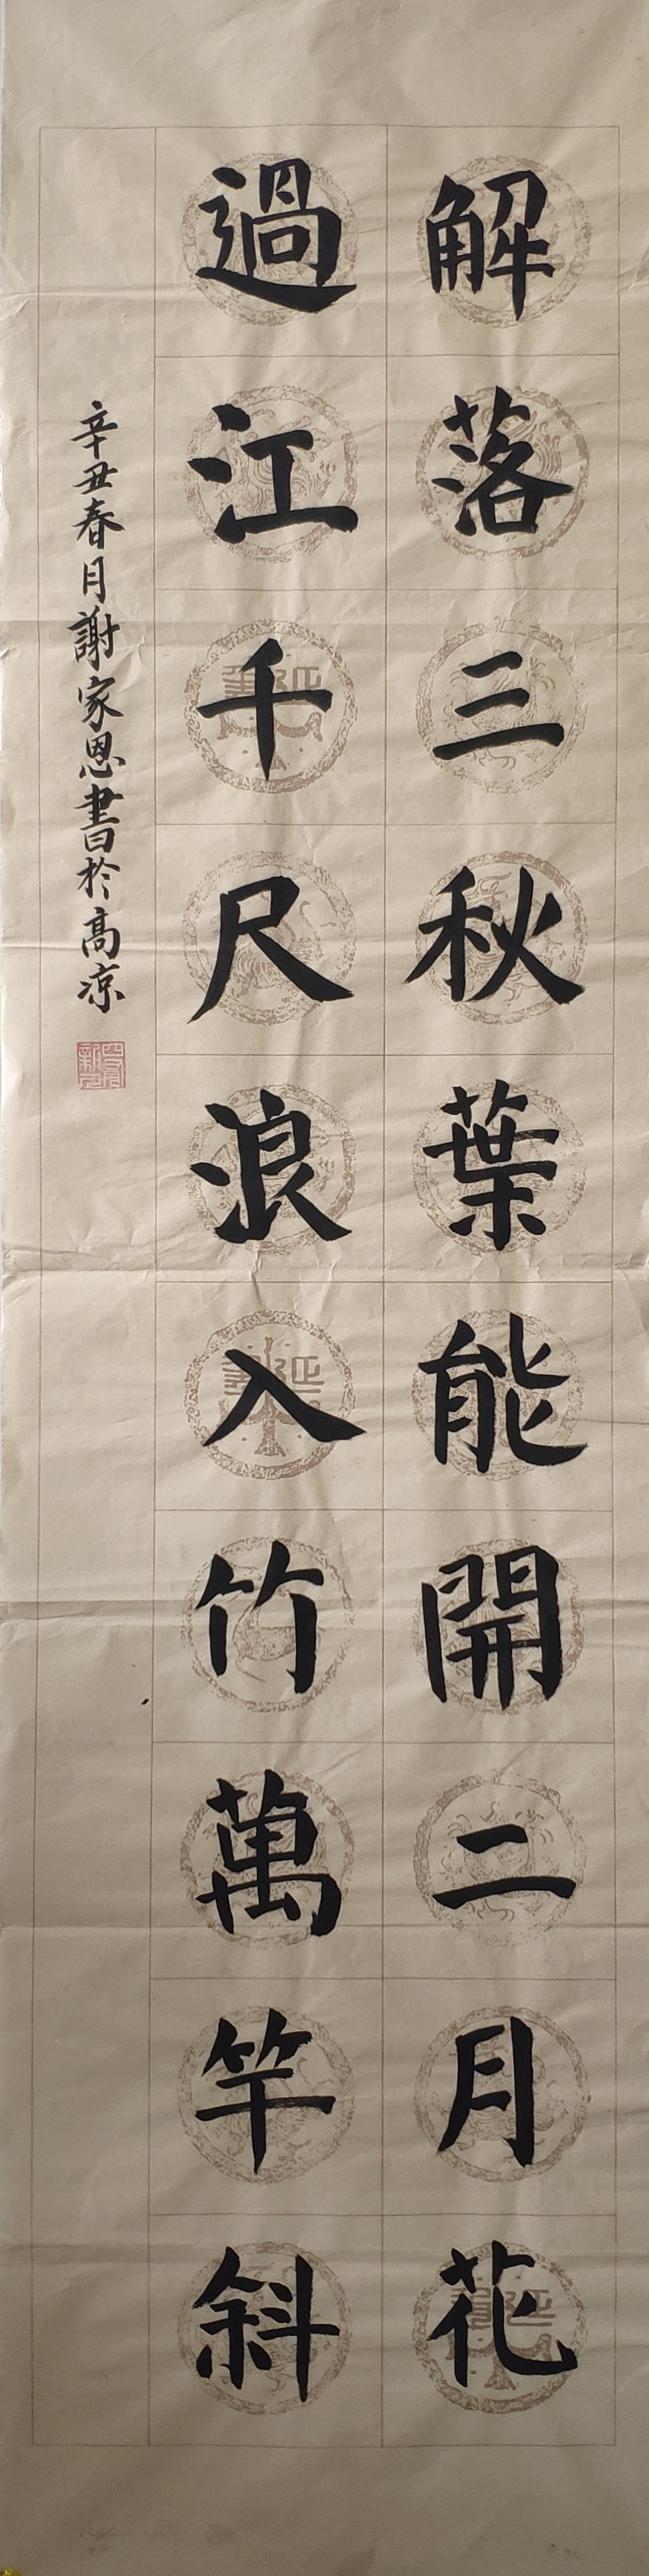 解落三秋葉能開二月花
過江千尺浪入竹萬竿斜
辛丑春月謝家恩書於高凉